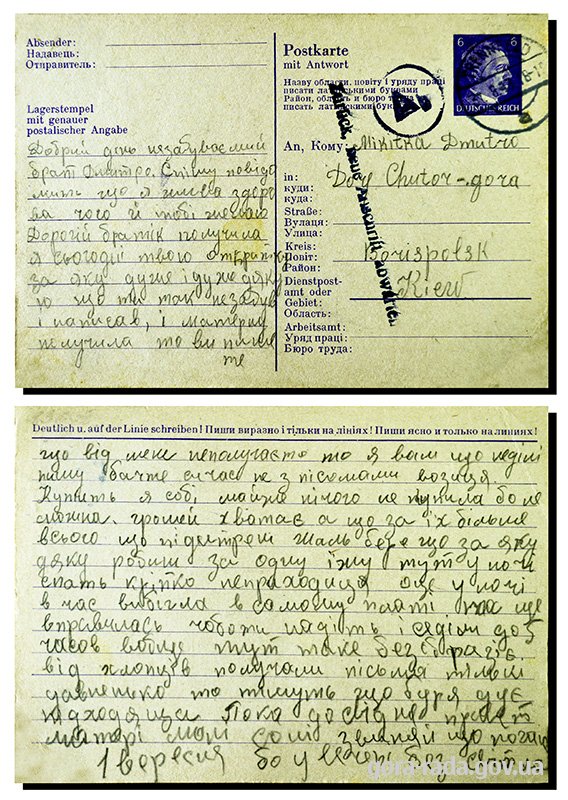 Absender:
Надавець:
Отправитель:
Lagerstempel
mit genauer
postalischer Angabe
Добрий день незабуваємий
брат Дмитро. Спішу повідо
мить що я жива здоро
ва чого й тобі желаю
Дорогий братік получила
я сьогодні твого открытку
за яку дуже і дуже дяку
ю що ти так незабув
і написав, і матерну
получила то ви пише
те
Postkarte
mit Antwort
6 6
DEUTSCHES REICH
Назву области, повіту і уряду праці
писати латинськими буквами
Район, область и бюро труда
писать латинскими буквами
Zurück, neue Anschrift abwarten.
An, Кому: Mikitka Dmitro
in:
куди:
куда:
Dorf Chutor-gora
Straße:
Вулиця:
Улица:
Kreis:
Повіт:
Район:
Borispolsk
Dienstpost-
amt oder
Gebiet:
Область:
Kiew
Arbeitsamt:
Уряд праці:
Бюро труда:
Deutlich u. auf der Linie schreiben! Пиши виразно і тільки на лініях! Пиши ясно и только на линиях!
що від мене неполучаєте то я вам що неділі
пишу бачте січас не з пісомами возиця
Купить я собі майже нічого не купила бо не
можна. грошей хватає а що за їх більше
всього що підстрел жаль бере що за яку
дяку робиш за одну їжу тут у ночі
спать кріпко неприходиця оце у ночі
в час вибігла в самому платі на це
вправилась чоботи надіть і седіли до 5
часов вобще тут таке безобразіє.
від хлопців получали пісьма тільки
давненько то пишуть що буря дує
підходяща Пока до свіданя привіт
матері
1 вересня бо у вечері без світла
gora-rada.gov.ua